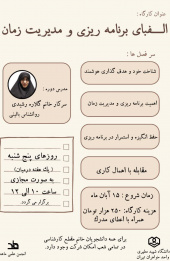 عنوان کارگاه :
الفبای برنامه ریزی و مدیریت زمان
سر فصل ها :
شناخت خود و هدف گذاری هوشمند
اهمیت برنامه ریزی و مدیریت زمان
حفظ انگیزه و استمرار در برنامه ریزی
مقابله با اهمال کاری
مدرس دوره :
سرکار خانم گلاره رشیدی
روانشناس بالینی
روزهای پنج شنبه
( یک هفته درمیان)
به صورت مجازی
ساعت ۱۰ الی ۱۲
برگزار می گردد
زمان شروع : ۱۵ آبان ماه
هزینه کارگاه: ۲۵۰ هزار تومان
همراه با اعطای مدرک
برای همه دانشجویان خانم مقطع کارشناسی
در تمامی شعب امکان شرکت وجود دارد.